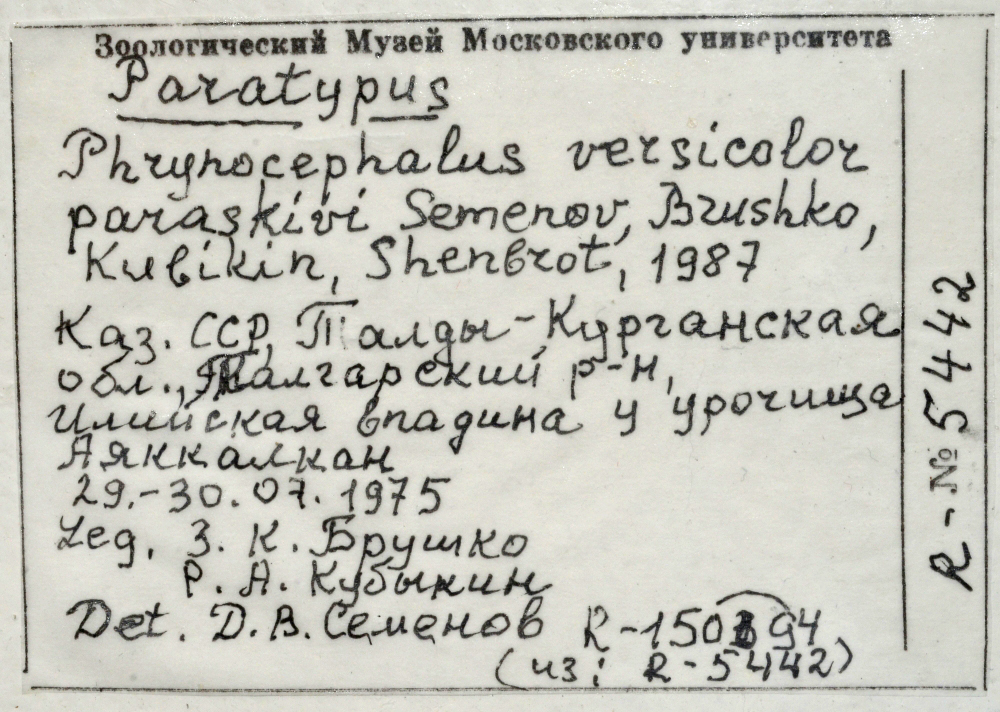 Зоологический Музей Московского университета
Paratypus
Phrynocephalus versicolor
paraskivi Semenov, Brushko,
Kubikin, Shenbrot, 1987
Каз. ССР, Талды-Курганская
обл., Талгарский р-н,
Илийская впадина у урочища
Аяккалкан
29.-30.07.1975
Leg. З. К. Брушко
Р. А. Кубыкин
Det. Д.В. Семенов R-150
(из: R-5442)
R-№5442